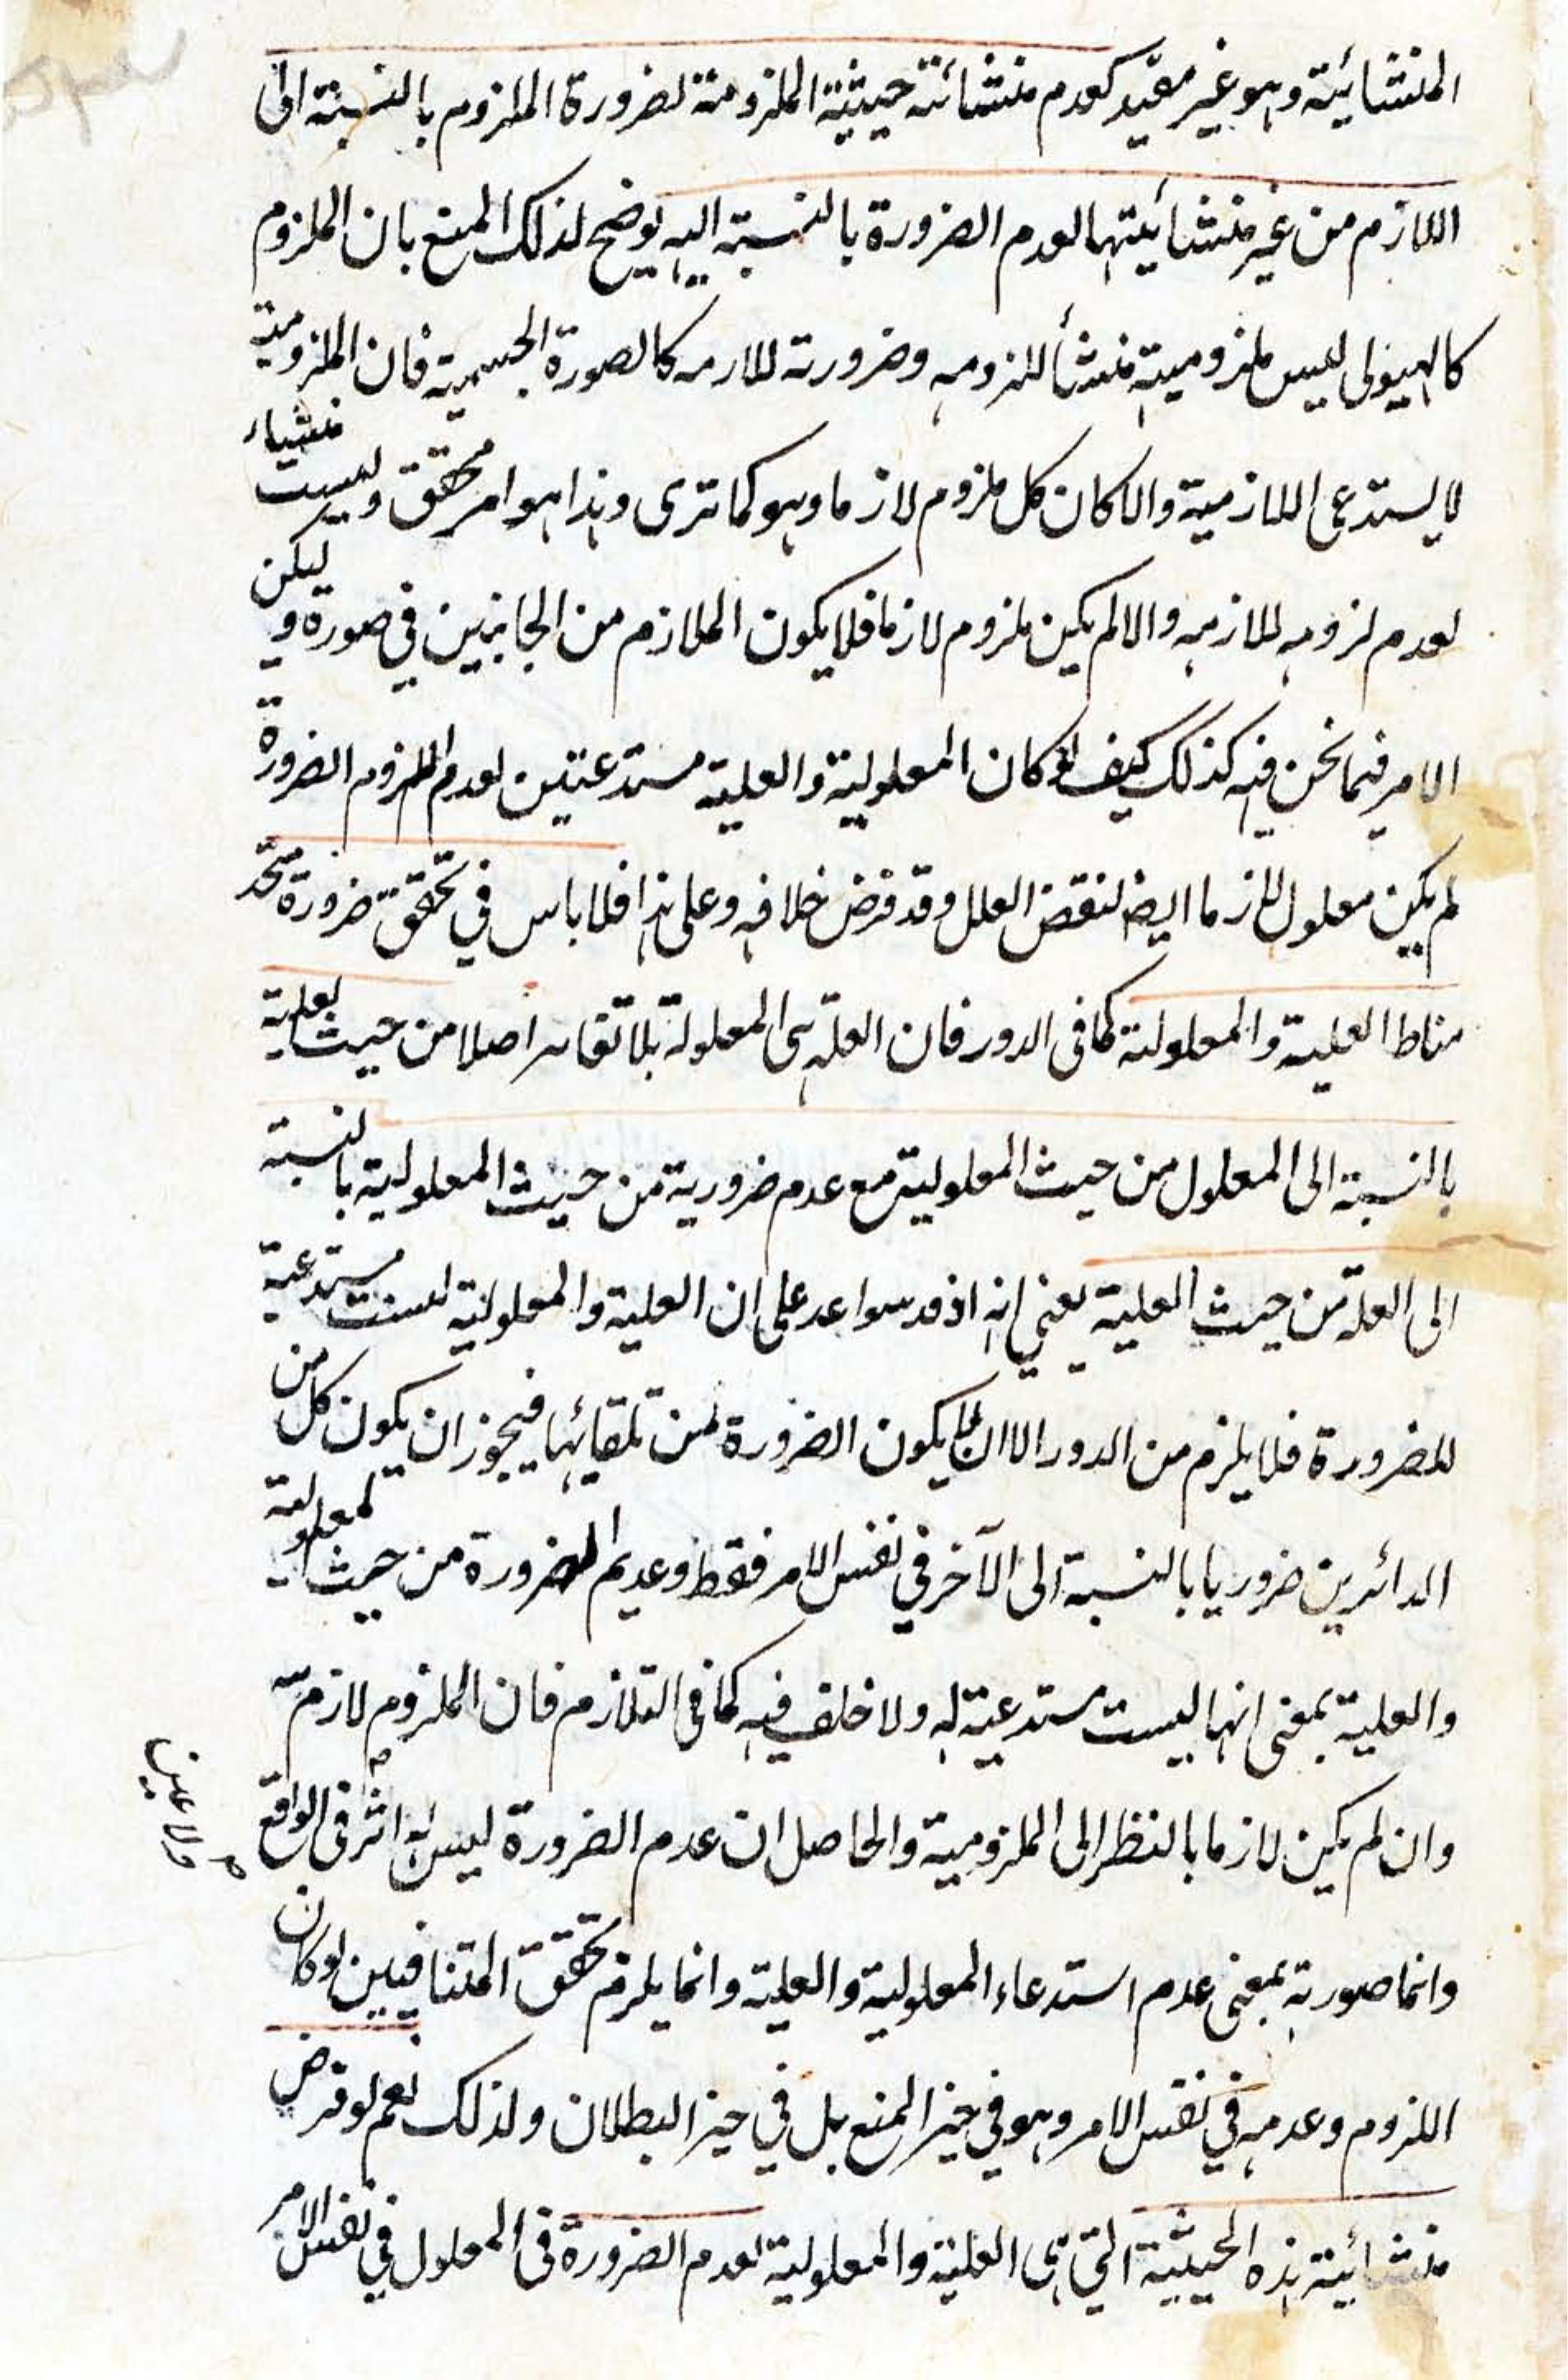 المنشائية وهو غير مقيد كعدم منشائة حيثية الملزومة لضرورة الملزوم بالنسبة الى
اللازم من غير منشائيتها لعدم الضرورة بالنسبة اليه يوضح لذلك المنع بان الملزوم
كالهيولى ليس ملزوميته منشأ للزومه وضرورته للازمه كالصورة الجسمية فان الملزومية
لا يستدعى اللازمية والا كان كل ملزوم لازما وهو كما ترى وهذا هو امر محقق وليست منشاء
لعدم لزومه للازمه والا لم يكن ملزوم لازما فلا يكون الملازم من الجانبين في صورة و ليكن
الامر فيما نحن فيه كذلك كيف لو كان المعلولية والعلية مستدعتين لعدم اللزوم الضرورة
لم يكن معلول لازما ايضا لنقض العلل وقد فرض خلافه وعلى هذا فلا باس في تحقق ضرورة متحد
مناط العلية والمعلولية كما في الدور فان العلة هى المعلولة بلا تغاير اصلا من حيث العلية
بالنسبة الى المعلول من حيث المعلولية مع عدم ضرورية من حيث المعلولية بالنسبة
الى العلة من حيث العلية يعني انه اذ قد سواعد على ان العلية والمعلولية ليست مستدعية
للضرورة فلا يلزم من الدور الا ان لا يكون الضرورة من تلقائها فيجوز ان يكون كل من
الدائرين ضروريا بالنسبة الى الآخر في نفس الامر فقط وعديم الضرورة من حيث المعلولية
والعلية بمعنى انها ليست مستدعية له ولا خلف فيه كما في التلازم فان الملزوم لازم
وان لم يكن لازما بالنظر الى الملزومية والحاصل ان عدم الضرورة ليس له اثر في الواقع
ولا عين
وانما صورته بمعنى عدم استدعاء المعلولية والعلية وانما يلزم تحقق المتنافيين لو كان
اللزوم وعدمه في نفس الامر وهو في حيز المنع بل في حيز البطلان ولذلك نعم لو فرض
منشائية هذه الحيثية التي هى العلية والمعلولية لعدم الضرورة في المعلول في نفس الامر